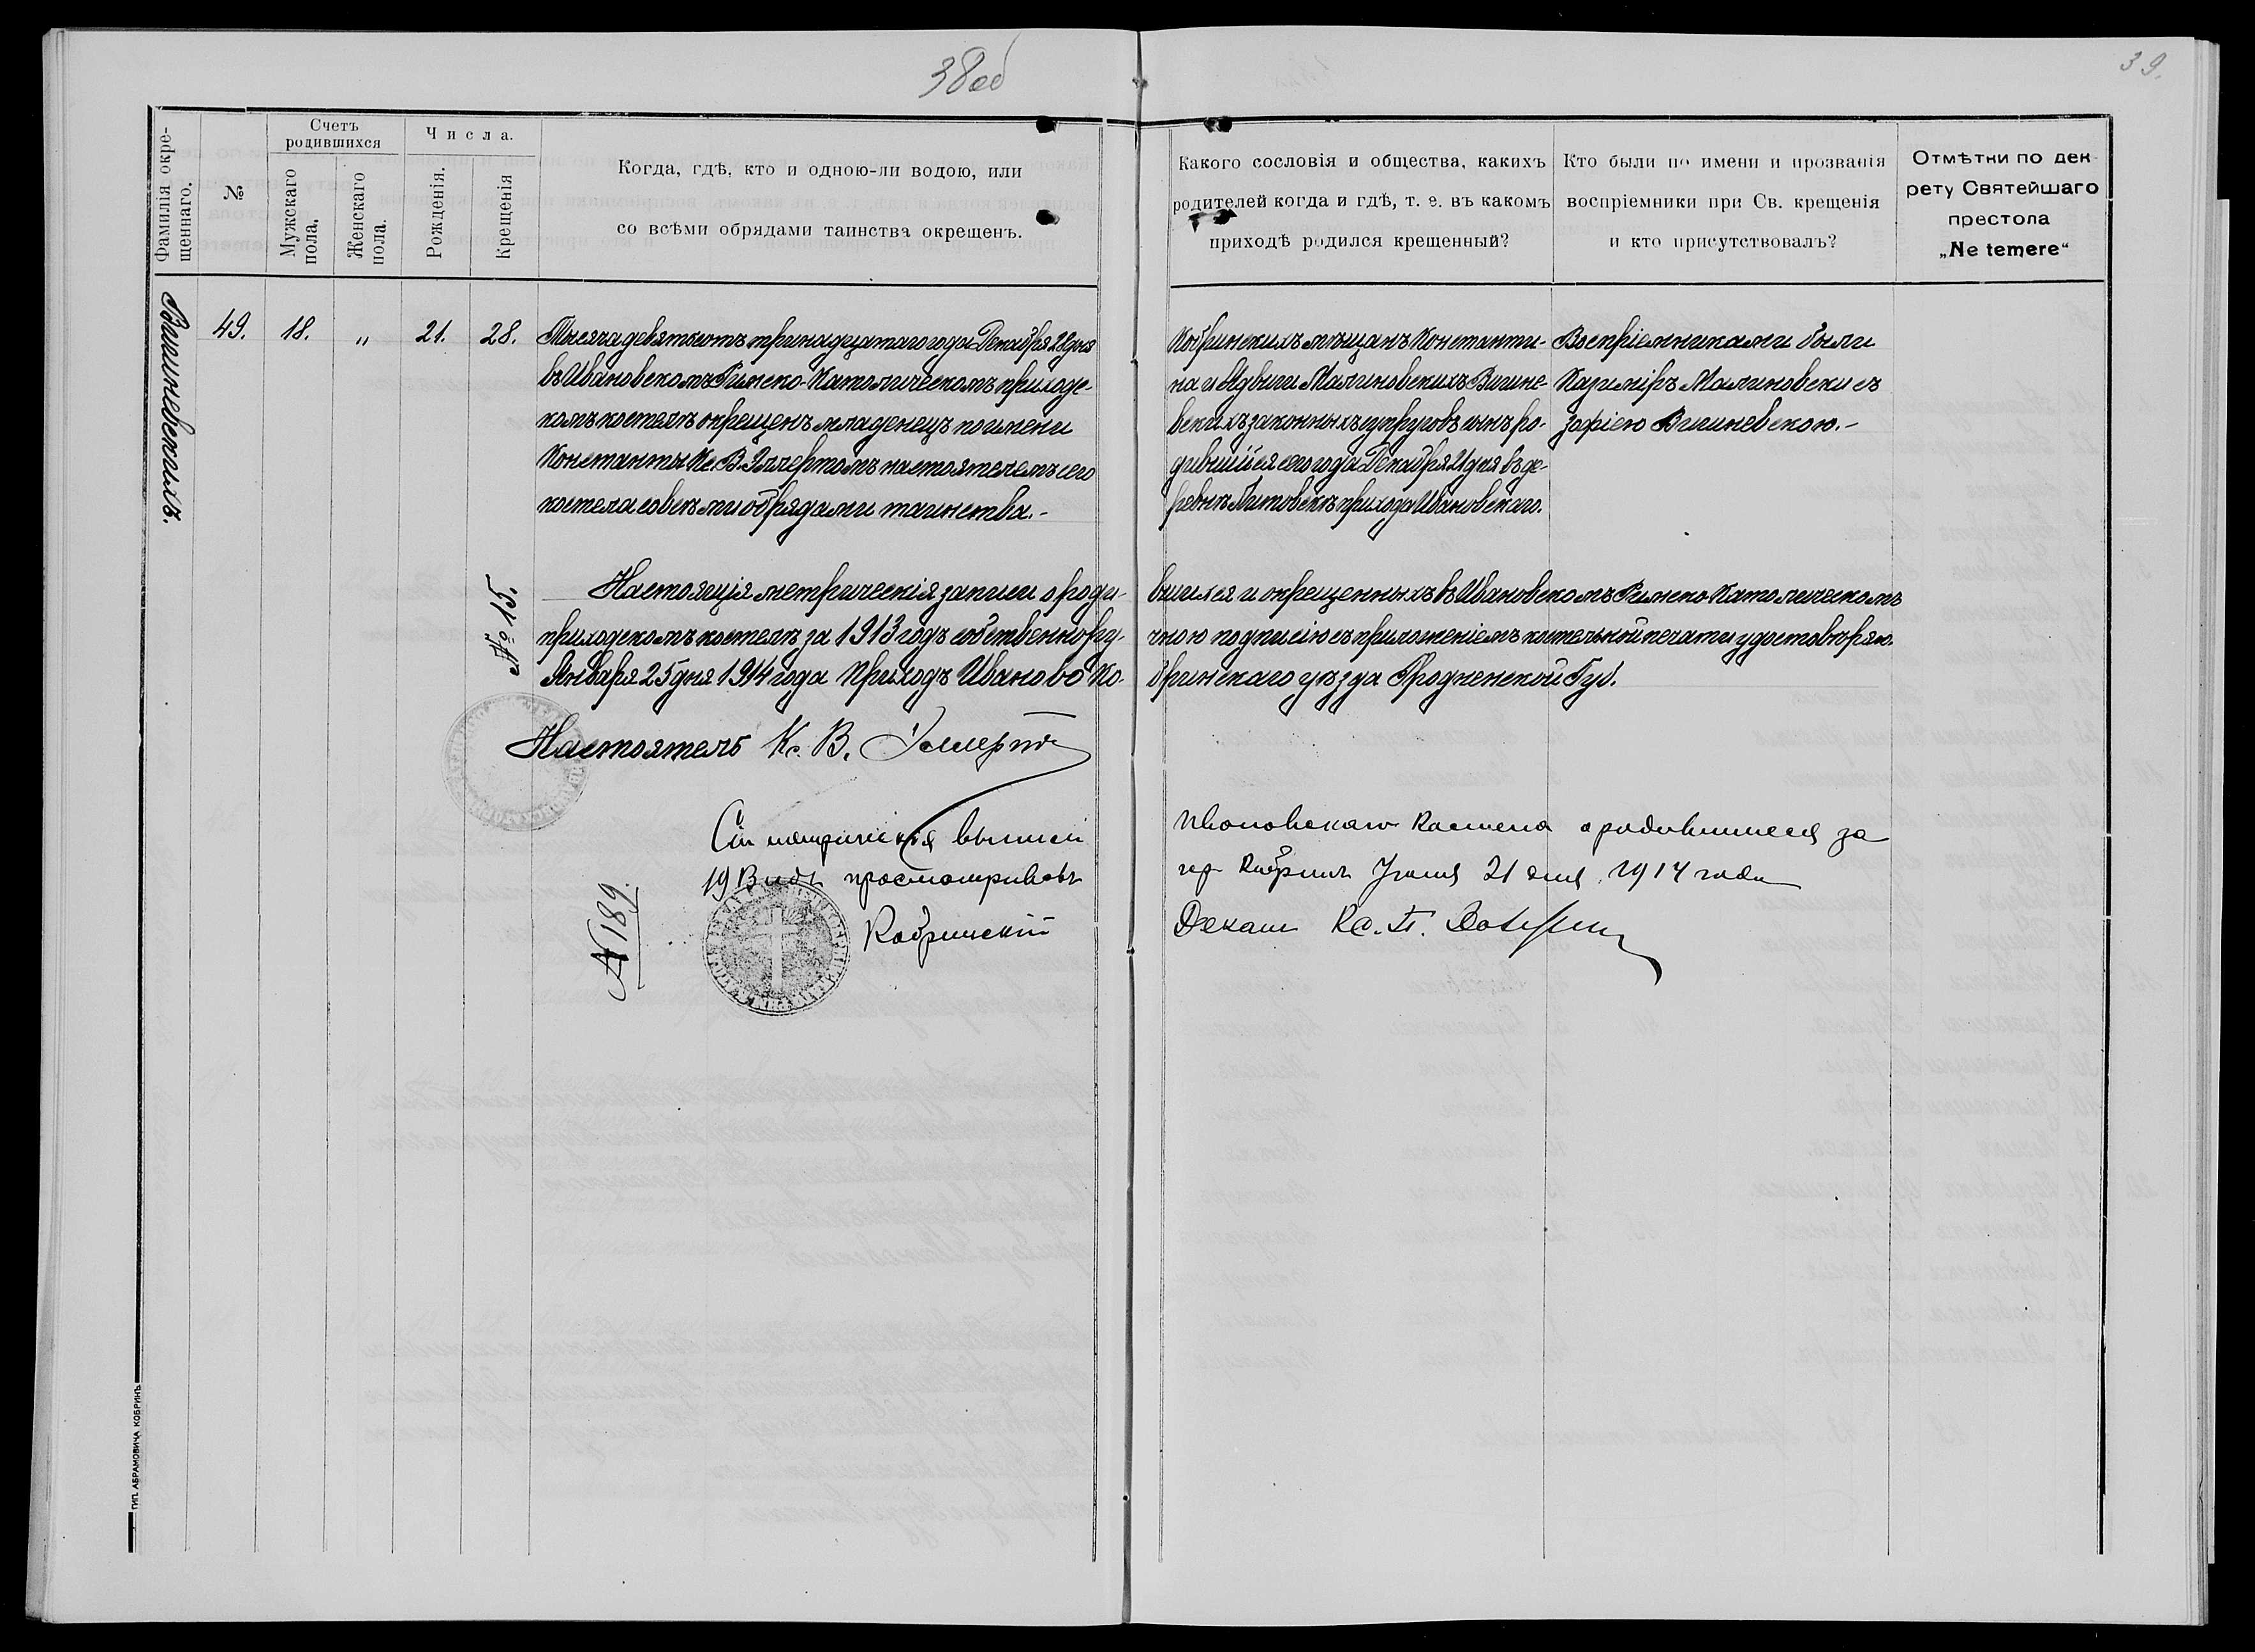 38об
39.
Фамилія окре-
щеннаго.
№
Счетъ
родившихся
Мужскаго
пола.
Женскаго
пола.
Числа.
Рожденія.
Крещенія
Когда, гдѣ, кто и одною-ли водою, или
со всѣми обрядами таинства окрещенъ.
Какого сословія и общества, какихъ
родителей когда и гдѣ, т. е. въ какомъ
приходѣ родился крещенный?
Кто были по имени и прозванія
воспріемники при Св. крещенія
и кто присутствовалъ?
Отмѣтки по дек
рету Святейшаго
престола
„Ne temere“
Вишневскихъ.
49.
18.
„
21.
28.
Тысяча девятьсотъ тринадцатаго года Декабря 28 дня
въ Ивановскомъ Римско-Католическомъ приходс-
комъ костелѣ окрещенъ младенецъ по имени
Константы Кс. В. Эллертомъ настоятелемъ сего
костела со всѣми обрядами таинства.-
Кобринскихъ мѣщанъ Константи-
на и Ядвиги Малиновскихъ Вишне-
вскихъ законныхъ супруговъ сынъ ро-
дившійся сего года Декабря 21 дня въ де-
ревнѣ Литовскѣ прихода Ивановскаго.
Воспріемниками были
Казиміръ Малиновски съ
Зофіею Вишневскою.-
№ 15.
Настоящія метрическія записи о роди-
вшихся и окрещенныхъ въ Ивановскомъ Римско-Католическомъ
приходскомъ костелѣ за 1913 годъ собственнору-
чною подписью съ приложеніемъ костельной печати удостовѣряю.
Января 25 дня 1914 года Приходъ Иваново Ко-
бринскаго уѣзда Гродненской Губ.
Настоятель Кс. В. Эллертъ
Сіи метрическія выписи
Ивановскаго Костела о родившихся за
1913 годъ просмотрѣвъ
гр Кобринъ Іюня 21 дня 1914 года
№ 189.
Кобринскій
Деканъ Кс.
ТИП. АБРАМОВИЧА КОБРИНЪ